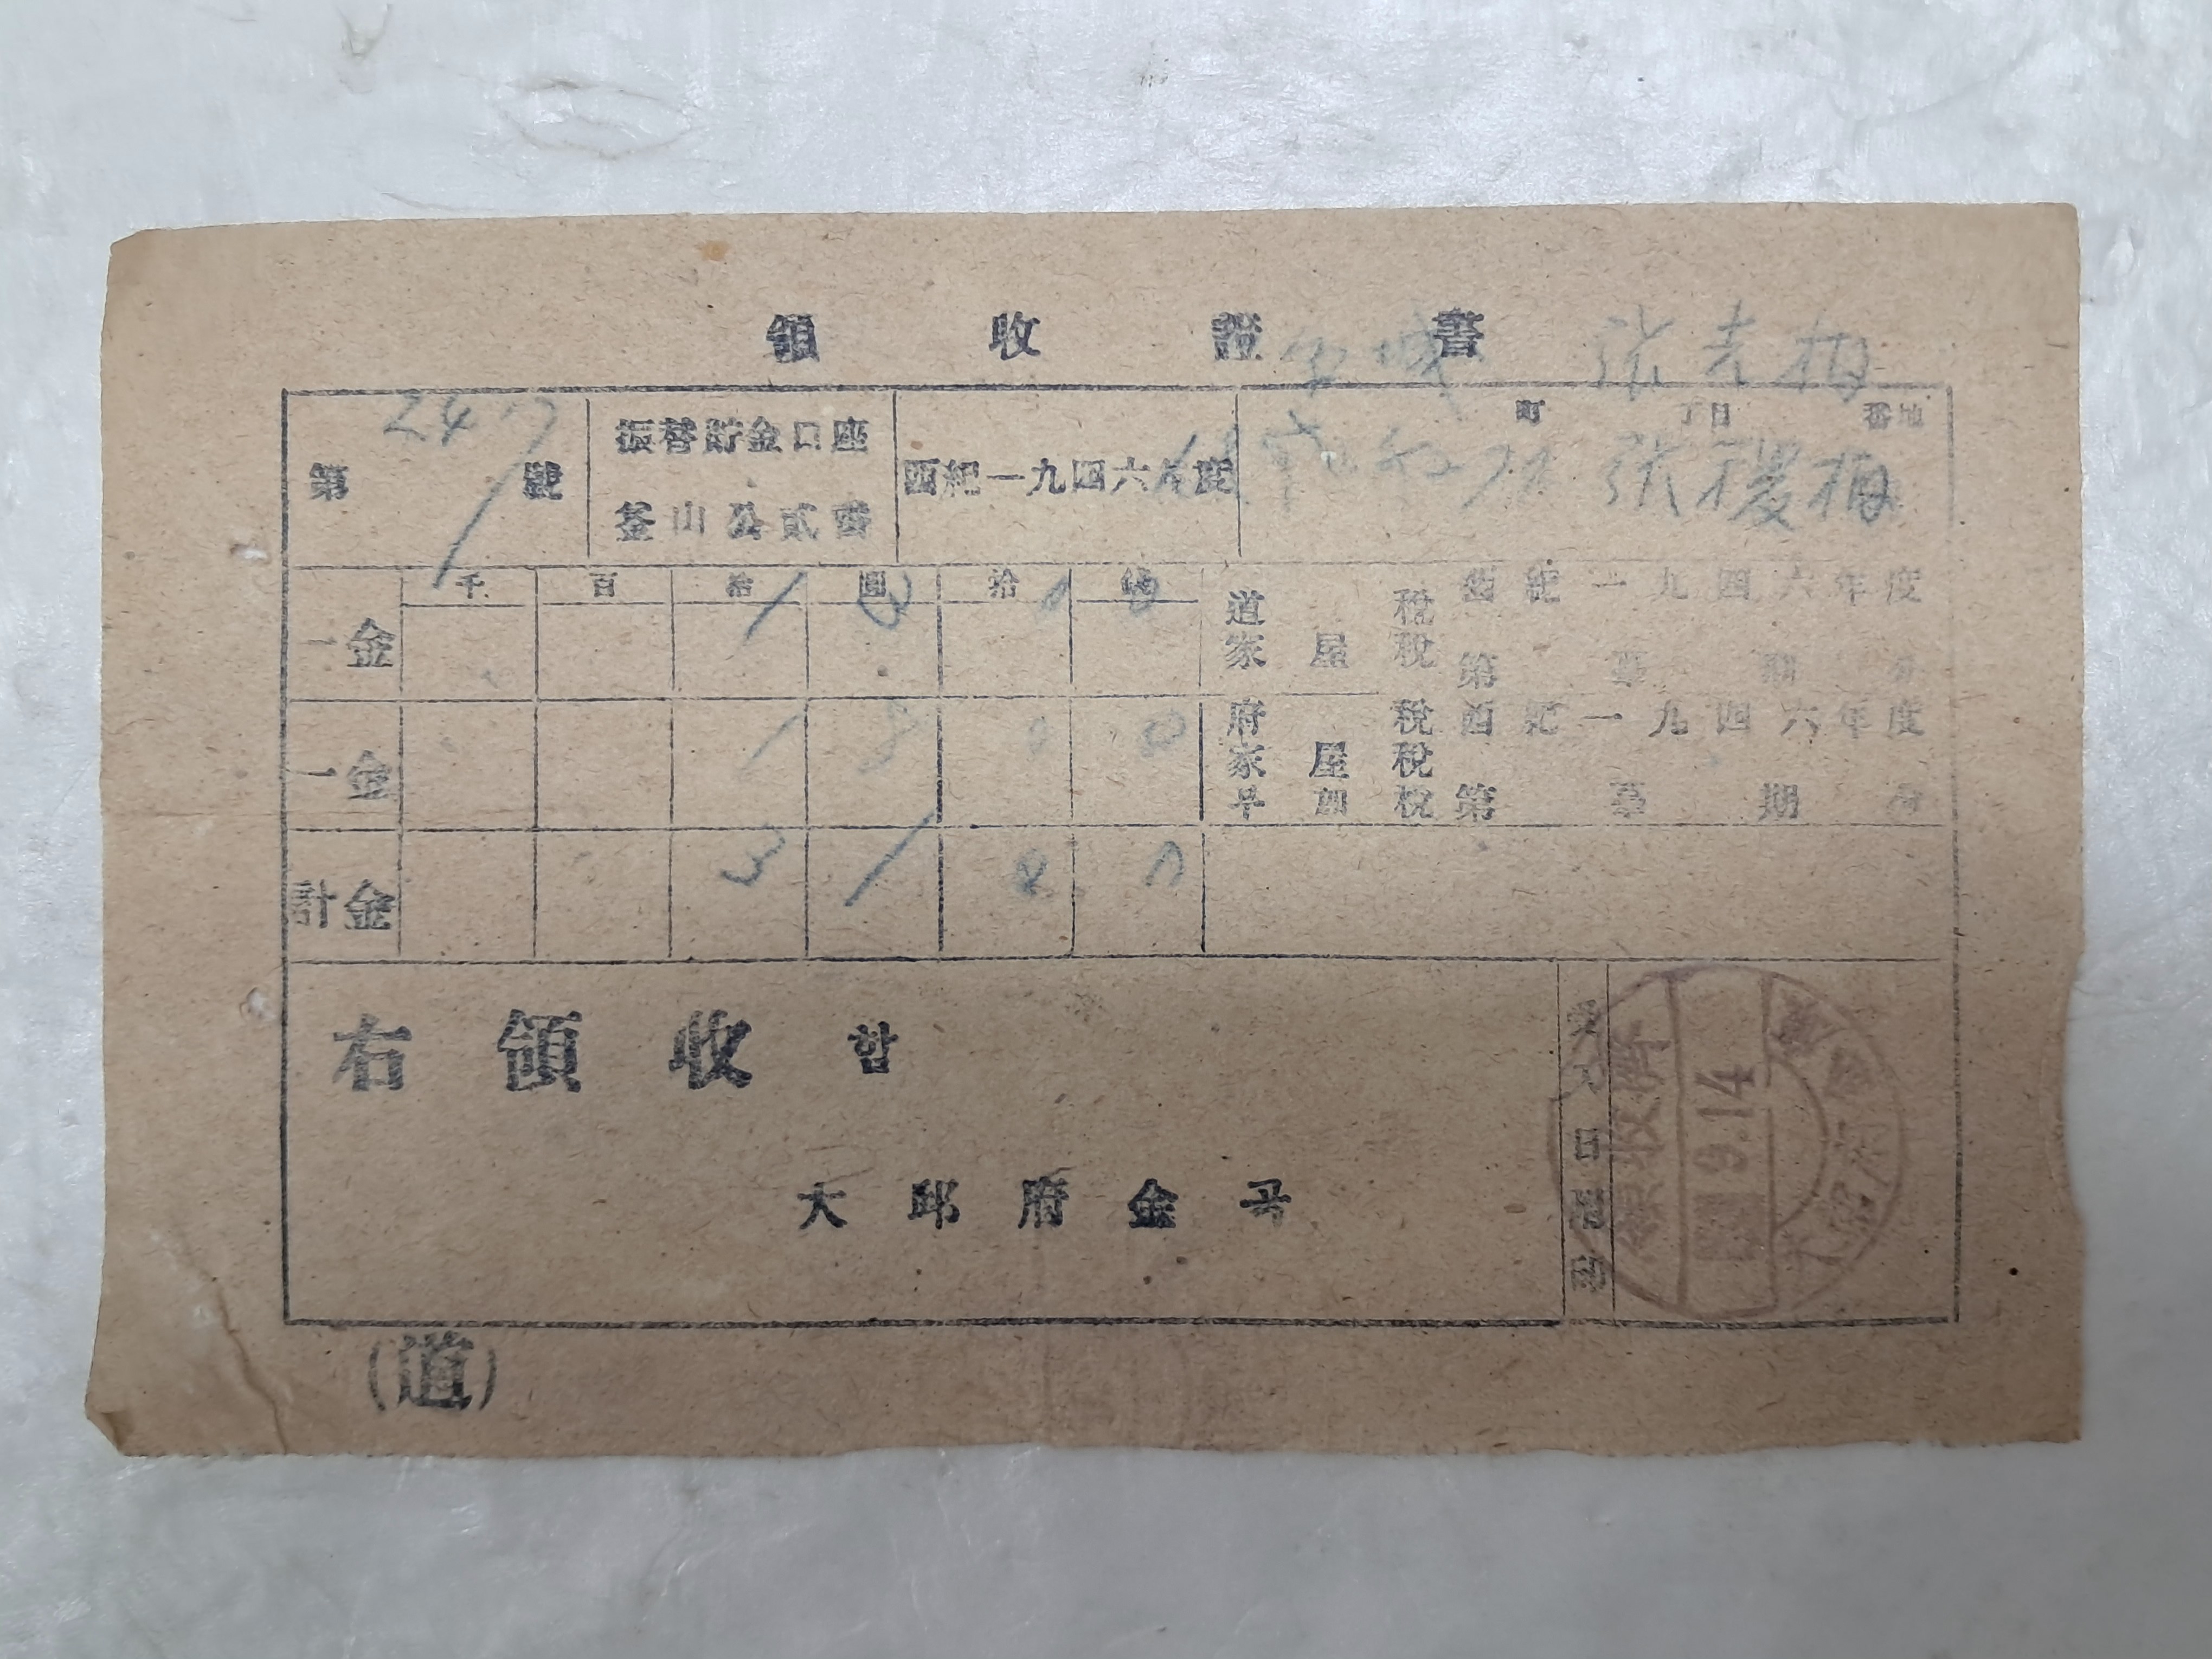 領收證書
張吉梅
町 丁目 番地
張稷梅
第 247 號
振替貯金口座
釜山公貳番
西紀一九四六年度
千 百 拾 圓 拾 錢
一金
道 稅 西紀一九四六年度
家屋稅 第 期分
一金
府 稅 西紀一九四六年度
家屋稅
附加稅 第 期分
計金 3 1 0 0
右領收함
大邱府金곡
領收濟
9.14
大邱府金庫
(道)